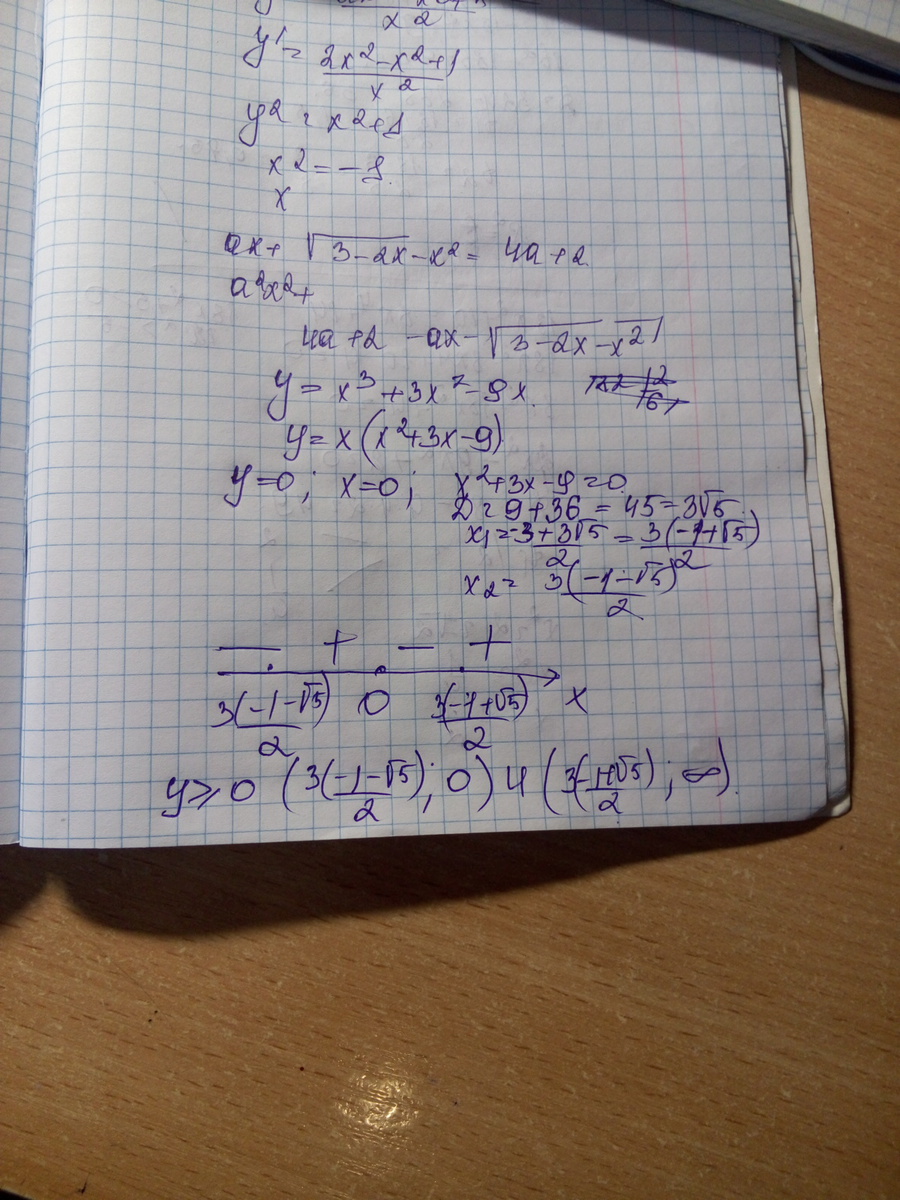 x2
y' = 2x² - x² + 1 / x²
y2 = x2+1
x2 = -1
x
ax + √3-2x-x² = 4a+2.
a²x²+
4a+2 -ax- √3-2x-x²
y = x³ +3x² -9x.
y = x(x²+3x-9)
y=0; x=0; x²+3x-9=0.
D=9+36 = 45=3√5.
x₁=-3+3√5 / 2 = 3(-1+√5) / 2
x₂= 3(-1-√5) / 2
— + — +
3(-1-√5) / 2 0 3(-1+√5) / 2 x
y≥0 (3(-1-√5) / 2; 0) U (3(-1+√5) / 2; ∞).